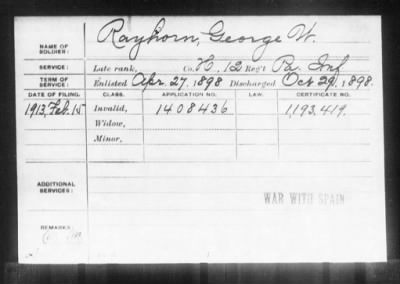 NAME OF SOLDIER: Rayhorn, George W.
SERVICE: Late rank, Co. H, 12 Reg't Pa. Inf
TERM OF SERVICE: Enlisted Apr. 27, 1898 Discharged Oct 29, 1898.
DATE OF FILING. CLASS. APPLICATION NO. LAW. CERTIFICATE NO.
1913, Feb. 15 Invalid, 1408436 1,193,419.
Widow,
Minor,
ADDITIONAL SERVICES:
WAR WITH SPAIN
REMARKS: